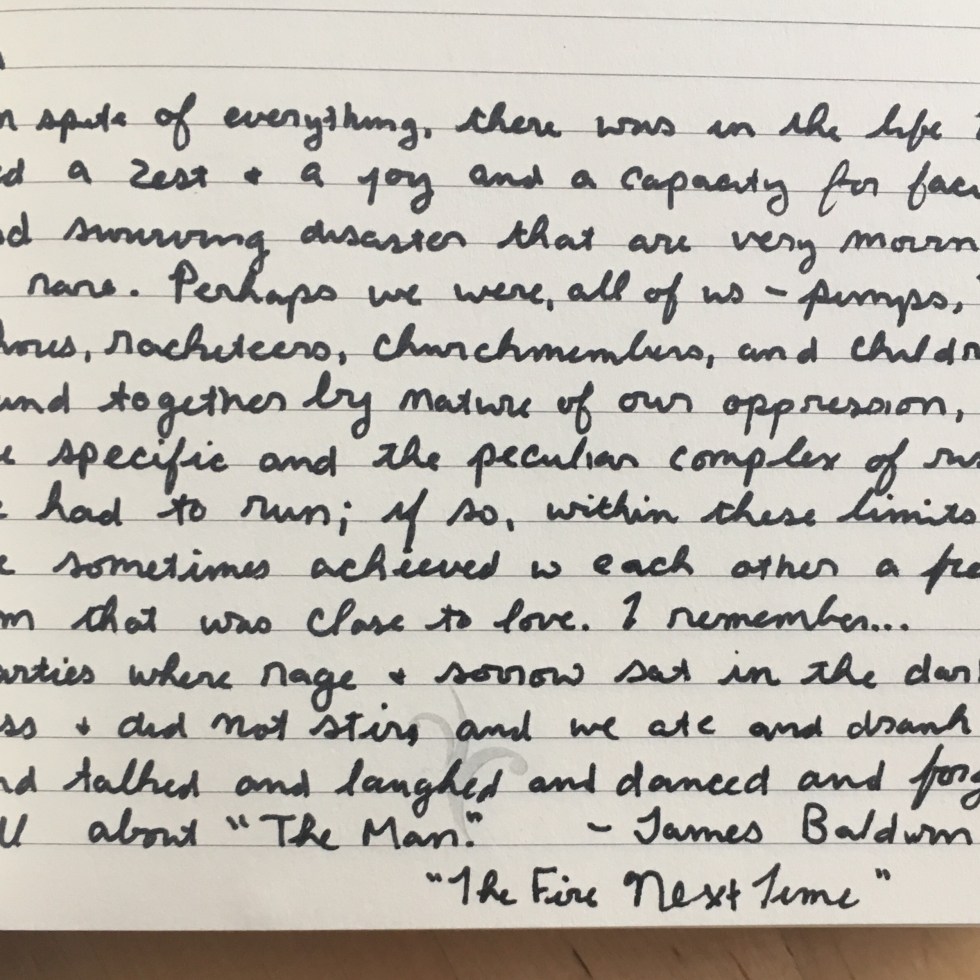 n spite of everything, there was in the life I
ed a zest + a joy and a capacity for fac
nd surviving disaster that are very movin
rare. Perhaps we were, all of us - pimps,
hores, racketeers, churchmembers, and childr
und together by nature of our oppression,
e specific and the peculiar complex of ris
e had to run; if so, within these limits
e sometimes achieved w each other a free
m that was close to love. I remember...
arties where rage + sorrow sat in the dark
ss + did not stir, and we ate and drank
nd talked and laughed and danced and forg
ll about "The Man." - James Baldwin
"The Fire Next Time"